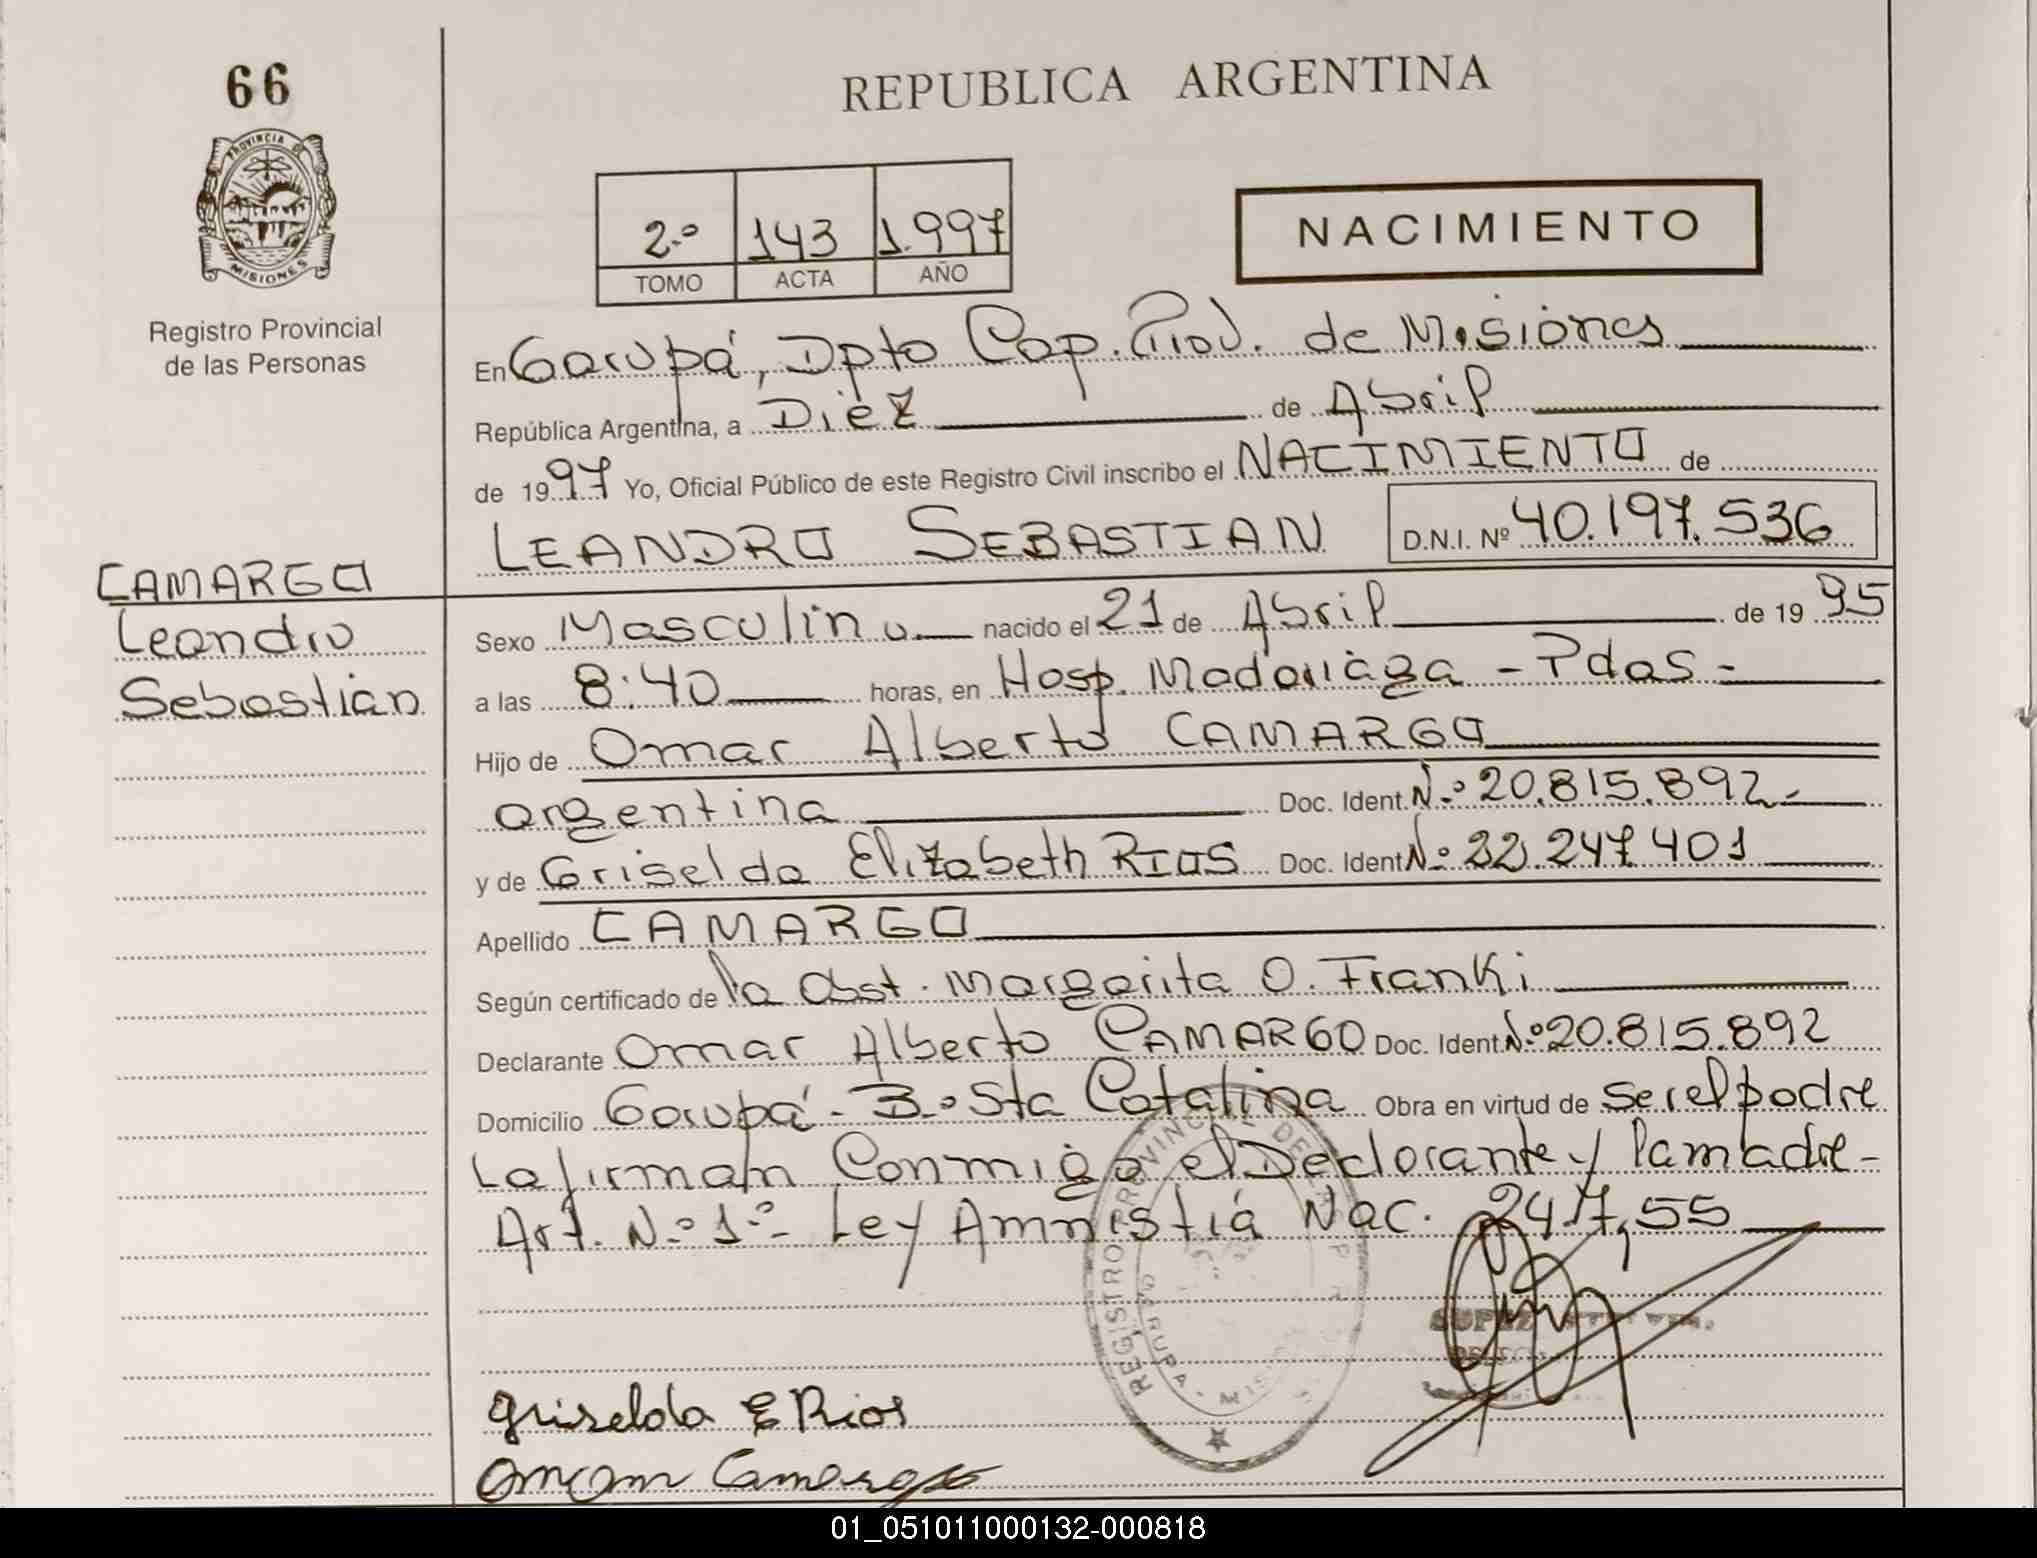 66
PROVINCIA DE
MISIONES
Registro Provincial
de las Personas
CAMARGO
Leandro
Sebastián
REPUBLICA ARGENTINA
2.º 143 1.997
TOMO ACTA AÑO
NACIMIENTO
En Garupá, Dpto Cap. Prov. de Misiones
República Argentina, a Diez de Abril
de 1997 Yo, Oficial Público de este Registro Civil inscribo el NACIMIENTO de
LEANDRO SEBASTIAN D.N.I. Nº 40.197.536
Sexo Masculino nacido el 21 de Abril de 1995
a las 8:40 horas, en Hosp. Madariaga - Pdas -
Hijo de Omar Alberto CAMARGO
argentina Doc. Ident. N.º 20.815.892.-
y de Griselda Elizabeth RIOS Doc. Ident N.º 22.247.401
Apellido CAMARGO
Según certificado de la Obst. Margarita O. Franki
Declarante Omar Alberto CAMARGO Doc. Ident. N.º 20.815.892
Domicilio Garupá - B.º Sta Catalina Obra en virtud de ser el padre
La firman Conmigo el Declarante y la madre -
Art. N.º 1.º - Ley Amnistiá Nac. 24.755
REGISTRO PROVINCIAL DE LAS PER
GARUPA - MISIONES
Griselda E Rios
Omar Camargo
01_051011000132-000818